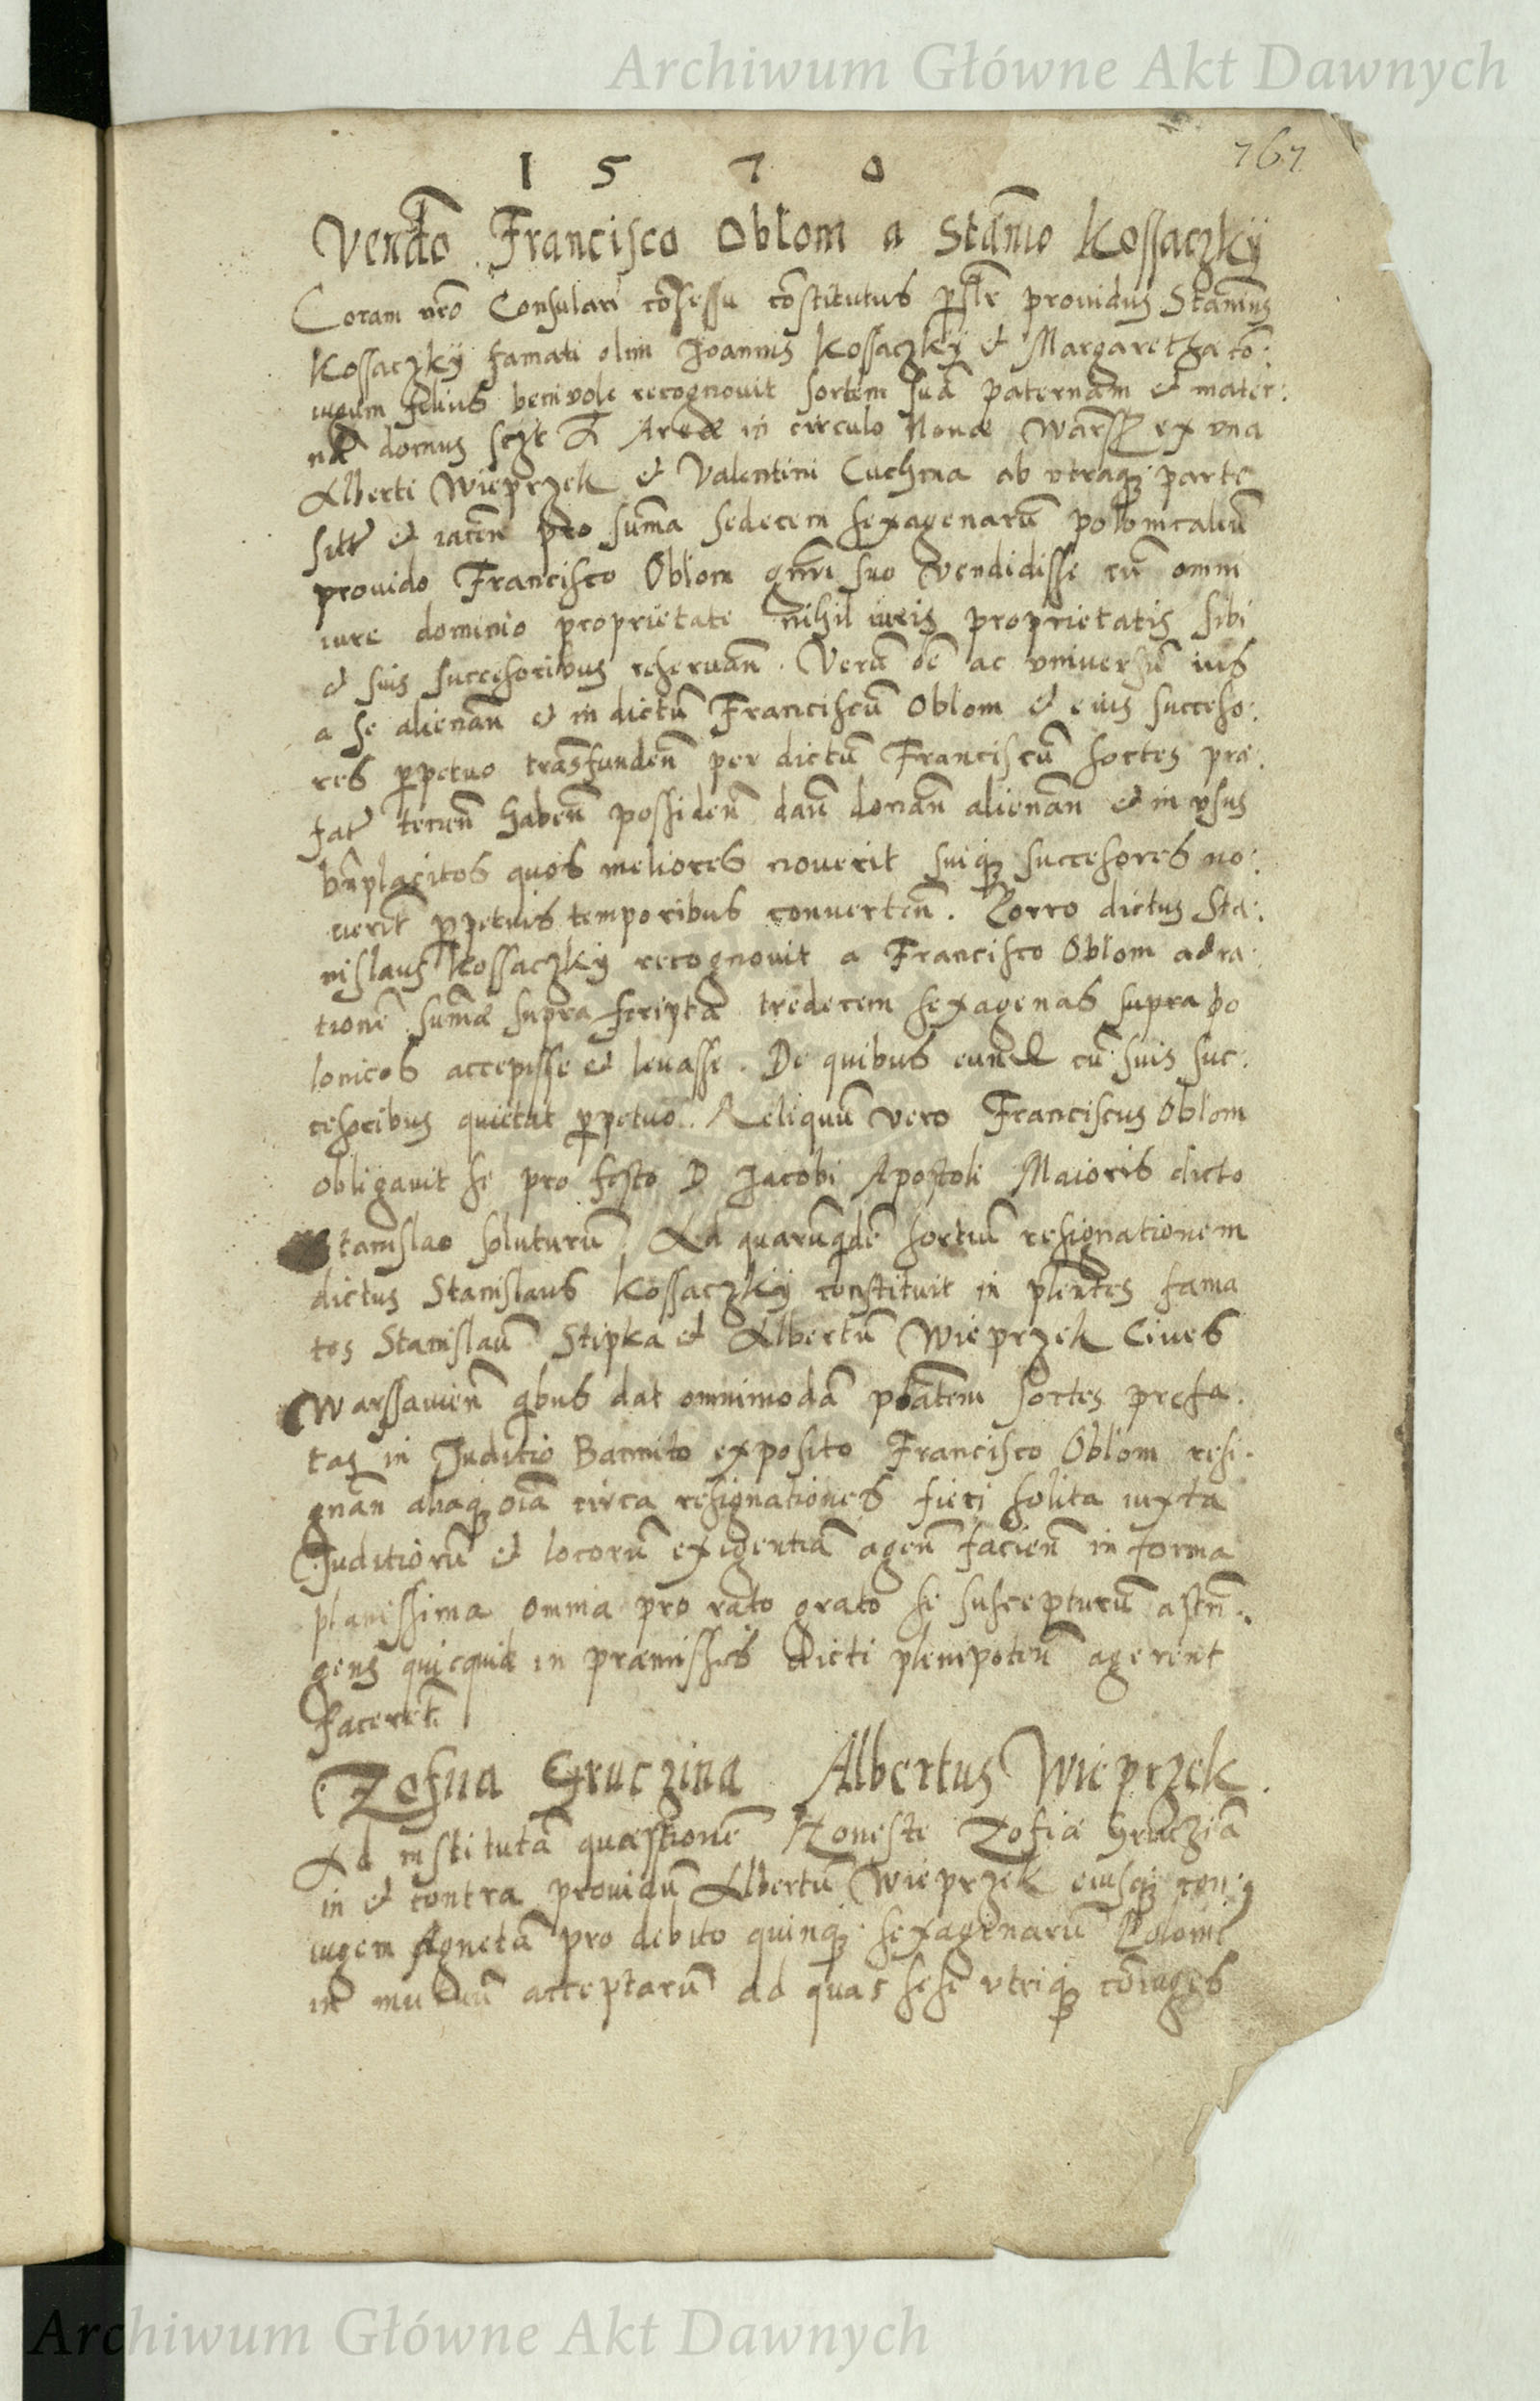 Archiwum Główne Akt Dawnych
767
1 5 7 0
Vendō Francisco Oblom a Stānīo Kossaczkÿ
Coram nrō Consulari cōsessu cōstitutus prouidus Stānīus
Kossaczkÿ famati olim Joannis Kossaczkÿ et Margaretha cō:
iugum filius beniuole recognouit sortem suā paternam et mater:
nā domus Areæ in circulo Nouæ Warss ex vna
Alberti Wieprzek et Valentini Cuchma ab vtraq; parte
et iacen̄ pro sum̄a sedecem sexagenarū polonicaliū
prouido Francisco Oblom suo vendidisse cū omni
iure dominio proprietate nihil iuris proprietatis sibi
et suis successoribus reseruan̄. Verū oē ac vniuersū ius
a se alienan̄ et in dictū Franciscū Oblom et eius successo:
res ꝑpetuo trāsfunden̄ per dictū Franciscū sortes præ:
fat tenen̄ haben̄ possiden̄ dan̄ donan̄ alienan̄ et in vsus
bn̄placitos quos meliores nouerit suiq; successores no:
uerit ꝑpetuis temporibus conuerten̄. Porro dictus Sta:
nislaus Kossaczkÿ recognouit a Francisco Oblom ad ra:
tionē sum̄æ supra scriptæ tredecem sexagenas supra po
lonicos accepisse et leuasse. De quibus eund cū suis suc:
cessoribus quietat ꝑpetuo. Reliquū vero Franciscus Oblom
obligauit se pro festo D Jacobi Apostoli Maioris dicto
Stanislao soluturū. Ad quarūqdē sortiū resignationem
dictus Stanislaus Kossaczkÿ constituit in plentes fama
tos Stanislaū Stipka et Albertū Wieprzek Ciues
Warssauien̄ qbus dat omnimodā ptātem sortes prefa:
tas in Juditio Bannito exposito Francisco Oblom resi:
gnan̄ aliaq; oīa circa resignationes fieri solita iuxta
Juditiorū et locorū exigentiā agen̄ facien̄ in forma
planissima omnia pro rato grato se suscepturū astrī:
gens quicquid in præmissis dicti plenipoten̄ agerent
facerēt.
Zofiia Gruczina Albertus Wieprzek.
Ad institutā quæstionē Honestæ Zofiæ Gruczīa
in et contra prouidū Albertū Wieprzek eiusq; con:
iugem Agnetā pro debito quinq; sexagenarū Polonī
in mutuū acceptarū ad quas sese vtriq; cōiuges
Archiwum Główne Akt Dawnych